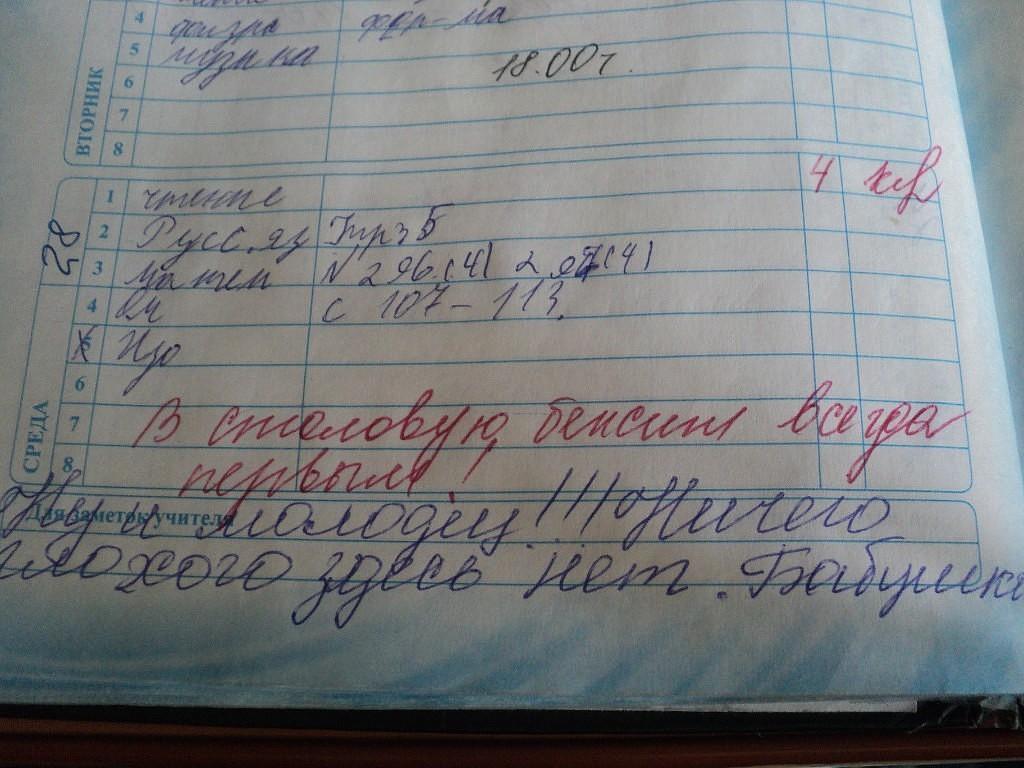 4 физра фор-ма
5 музыка
6 18.00 г.
7
8
ВТОРНИК
1 чтение 4
2 Русс. яз Упр 35
3 матем № 296 (4) 297 (4)
4 с 107-113.
5 Изо
6
7 В столовую бежит всегда
8 первым!
28
СРЕДА
Для заметок учителя
Ну и молодец!!! Ничего
плохого здесь нет. Бабушка